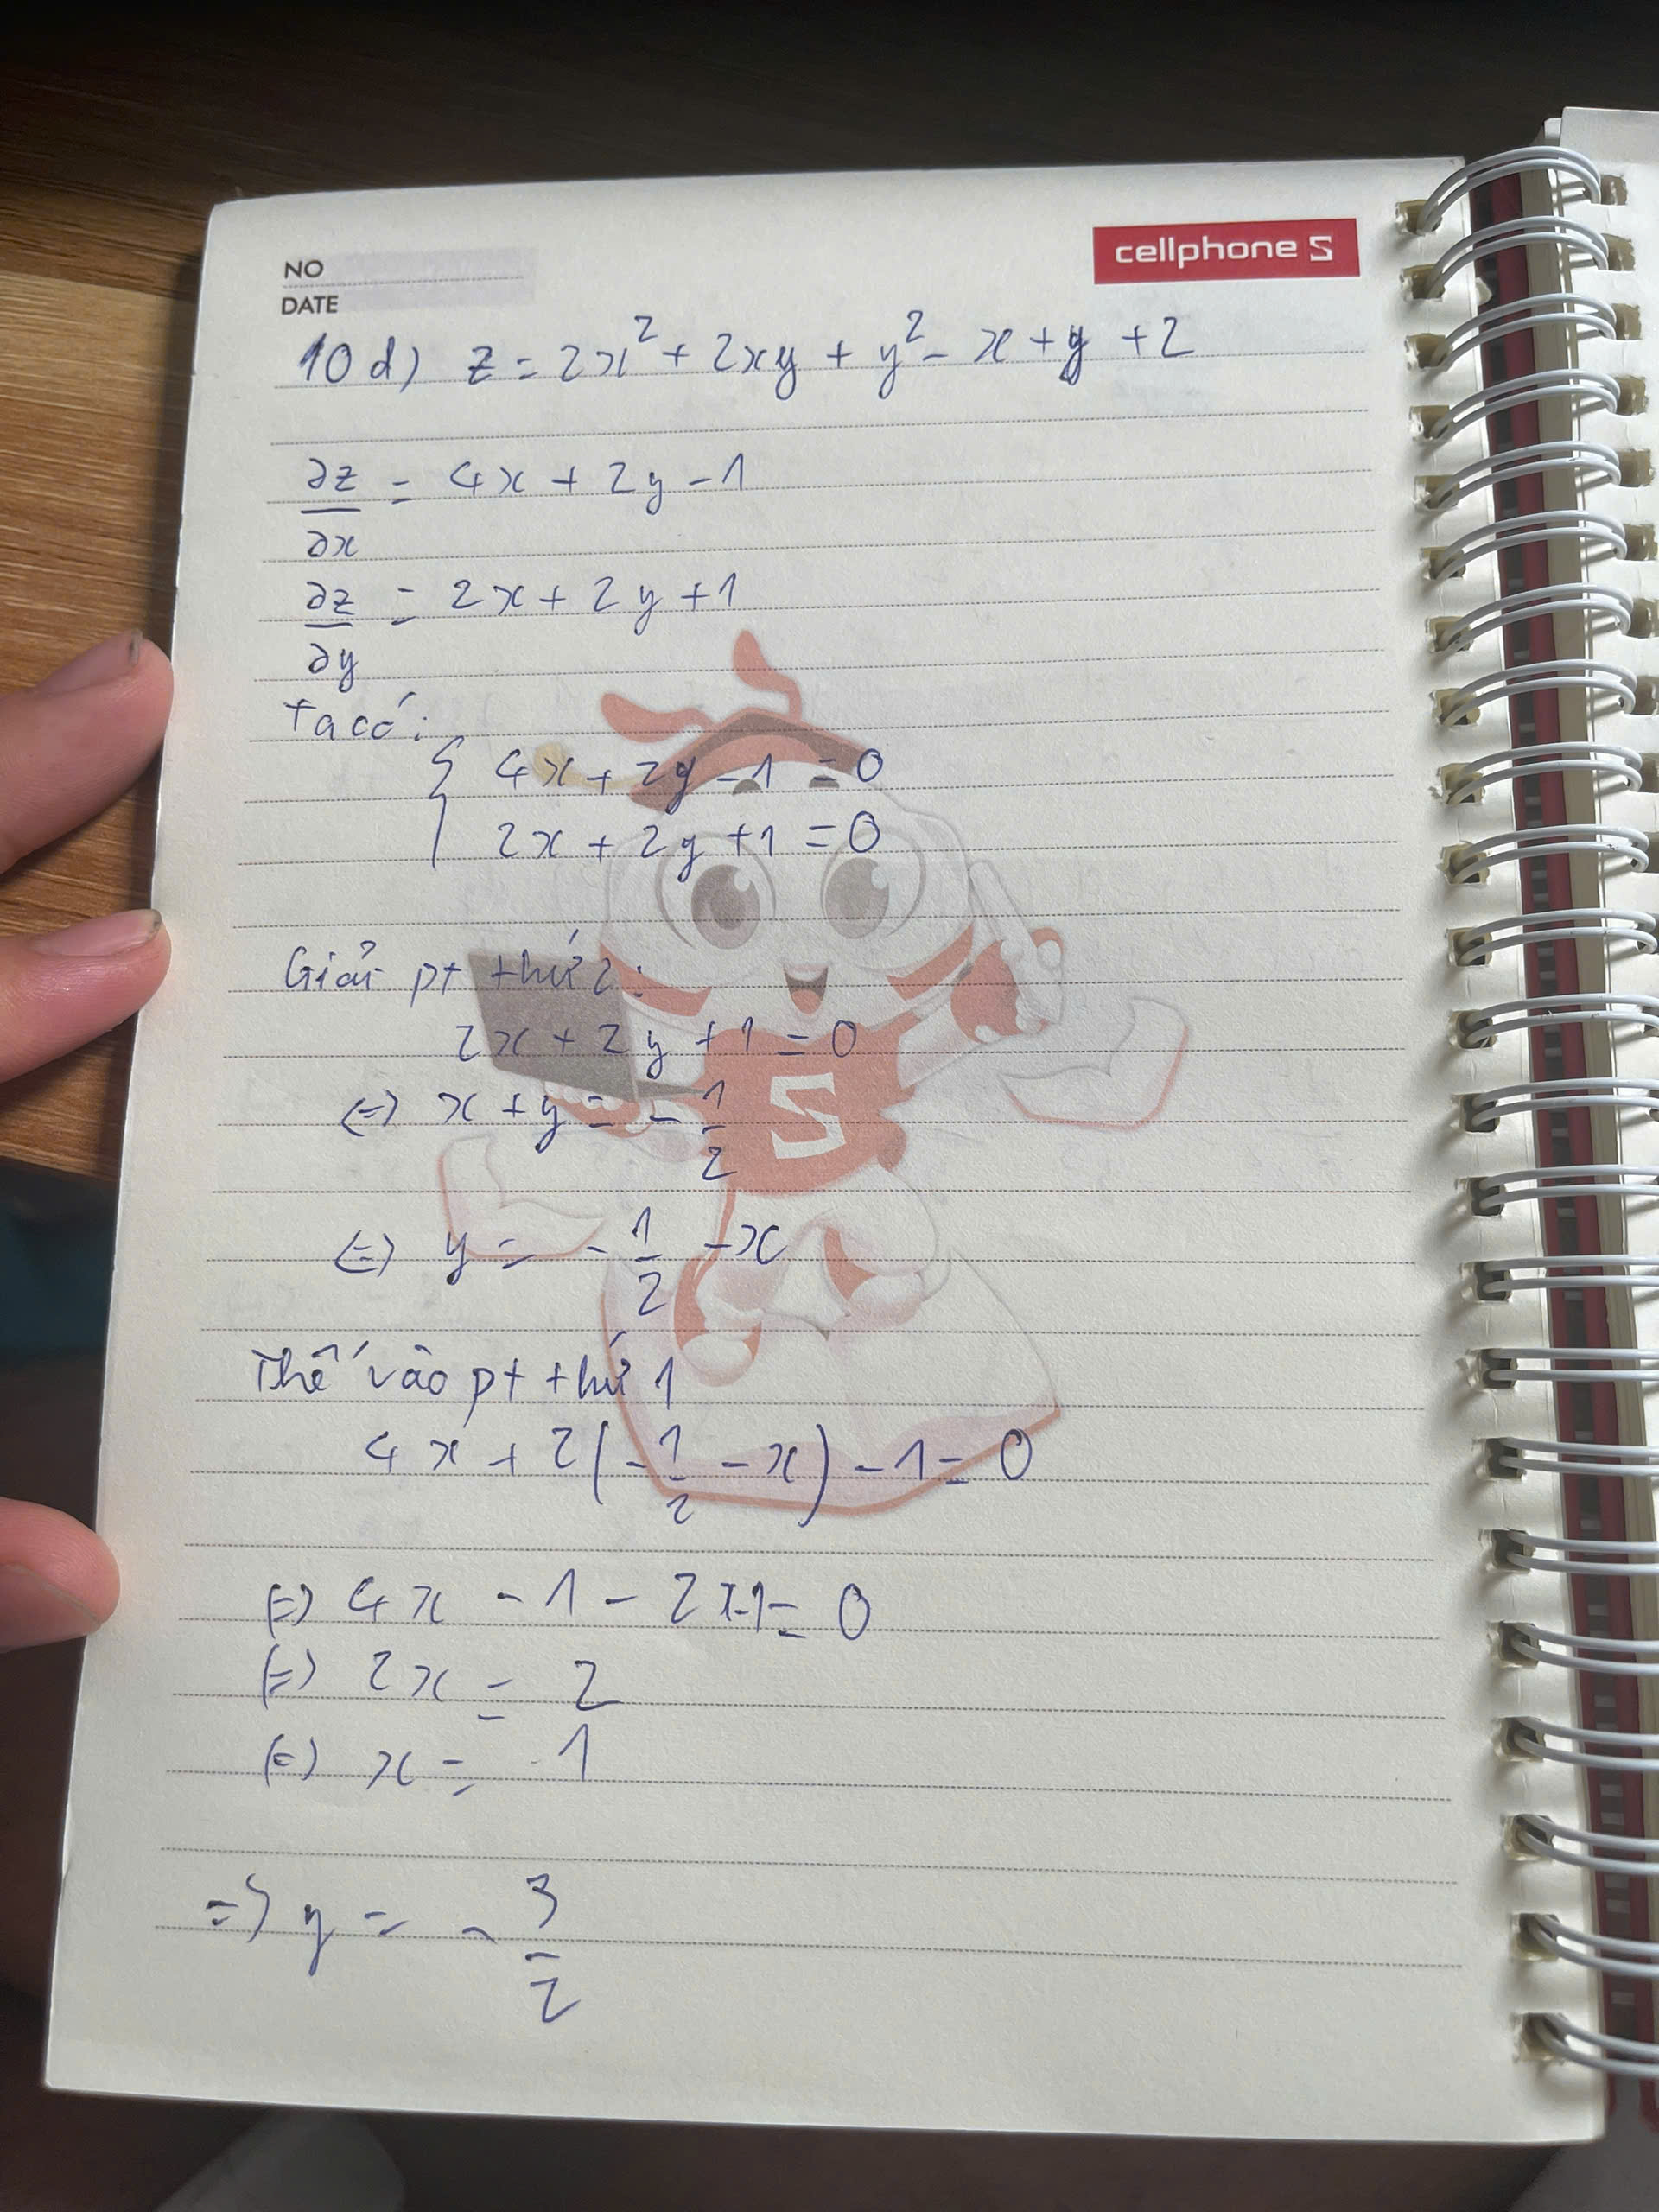 NO
cellphone S
DATE
10 d) z = 2x² + 2xy + y² - x + y + 2
∂z/∂x = 4x + 2y - 1
∂z/∂y = 2x + 2y + 1
Ta có:
{ 4x + 2y - 1 = 0
2x + 2y + 1 = 0
Giải pt thứ 2:
2x + 2y + 1 = 0
(=) x + y = - 1/2
(=) y = - 1/2 - x
Thế vào pt thứ 1
4x + 2(- 1/2 - x) - 1 = 0
(=) 4x - 1 - 2x - 1 = 0
(=) 2x = 2
(=) x = 1
=) y = - 3/2
S